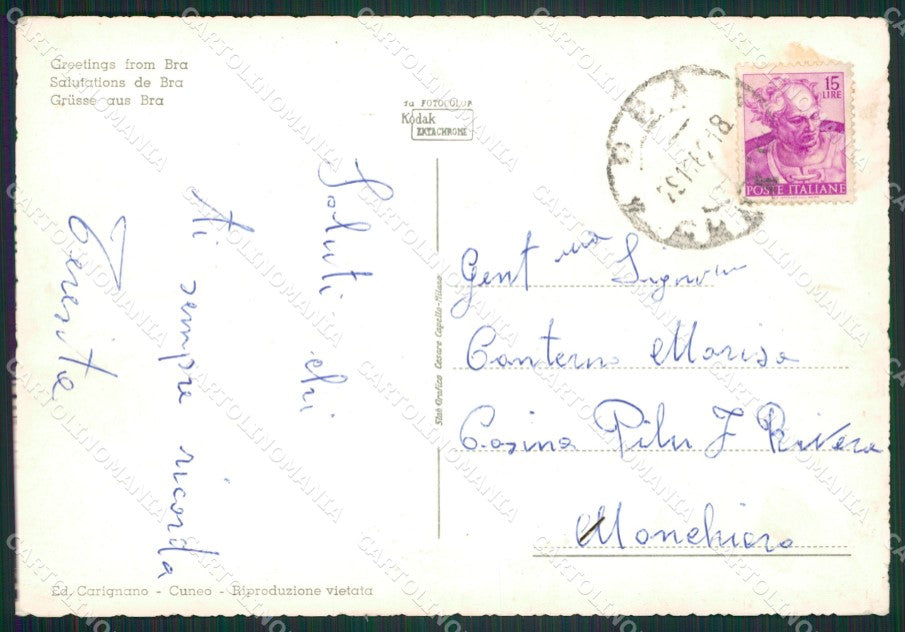 Greetings from Bra
Salutations de Bra
Grüsse aus Bra
da FOTOCOLOR
Kodak
EKTACHROME
15
LIRE
POSTE ITALIANE
Saluti chi
ti sempre ricorda
Teresita
Gent ma Signorina
Canterno Marisa
Casina Pilu J Rivera
Monchiero
Stab Grafico Cesare Capello-Milano
Ed. Carignano - Cuneo - Riproduzione vietata
CARTOLINOMANIA